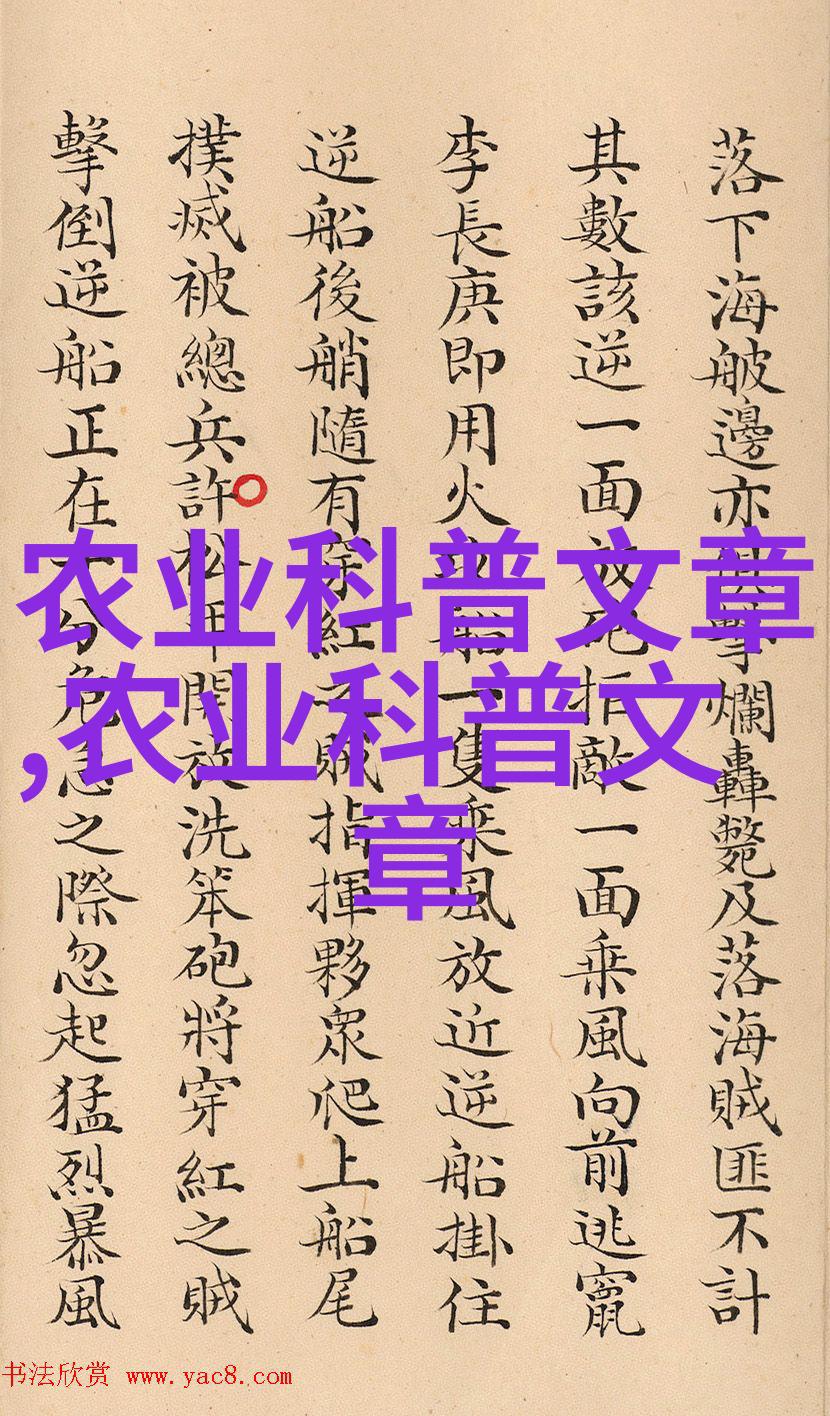 落下海舨邊亦俱擊爛轟斃及落海賊匪不計
其數該逆一面放砲拒敵一面乘風向前逃竄
李長庚即用火攻船一隻乘風放近逆船掛住
逆船後艄隨有穿紅之賊指揮夥眾爬上船尾
撲滅被總兵許松年開放洗笨砲將穿紅之賊
擊倒逆船正在十分危急之際忽起猛烈暴風
农业科普文章
,农业科普文
章
书法欣赏 www.yac8.com